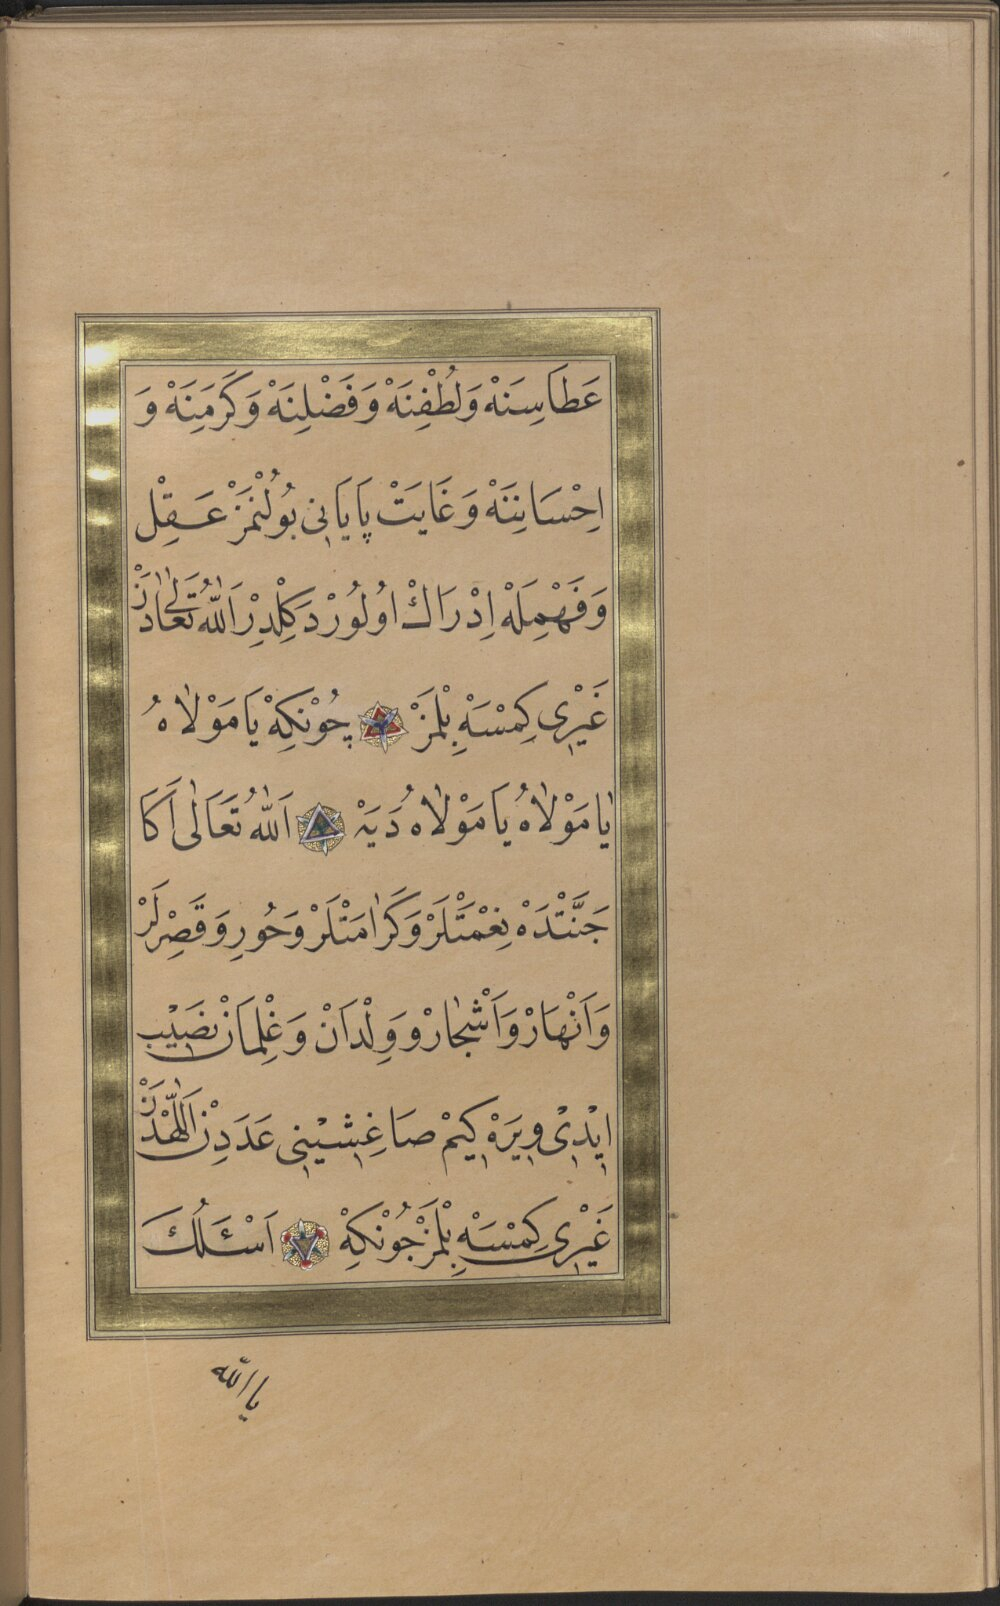 عَطَاسِنَهْ وَلُطْفِنَهْ وَفَضْلِنَهْ وَكَرَمِنَهْ وَ
اِحْسَانِنَهْ وَغَايَتْ پَايَانِى بُولُنْمَزْ عَقِلْ
وَفَهْمِلَهْ اِدْرَاكْ اوُلُورْ دَكِلْدِرْ اَللّٰهُ تَعَالٰىدَنْ
غَيْرِى كِمْسَهْ بِلْمَزْ چُوْنكِهْ يَا مَوْلَاهُ
يَا مَوْلَاهُ يَا مَوْلَاهُ دَيَهْ اَللّٰهُ تَعَالٰى اَكَا
جَنَّتْدَهْ نِعْمَتْلَرْ وَكَرَامَتْلَرْ وَحُورِ وَقَصِرْلَرْ
وَاَنْهَارْ وَاَشْجَارْ وَوِلْدَانْ وَغِلْمَانْ نَصَيْب
اِيْدِىْ وِيرَهْ كِيمْ صَاغِشِيْنِى عَدَدِنْ اَللّٰهْدَنْ
غَيْرِى كِمْسَهْ بِلْمَزْ جُوْنكِهْ اَسْئَلُكَ
يا الله